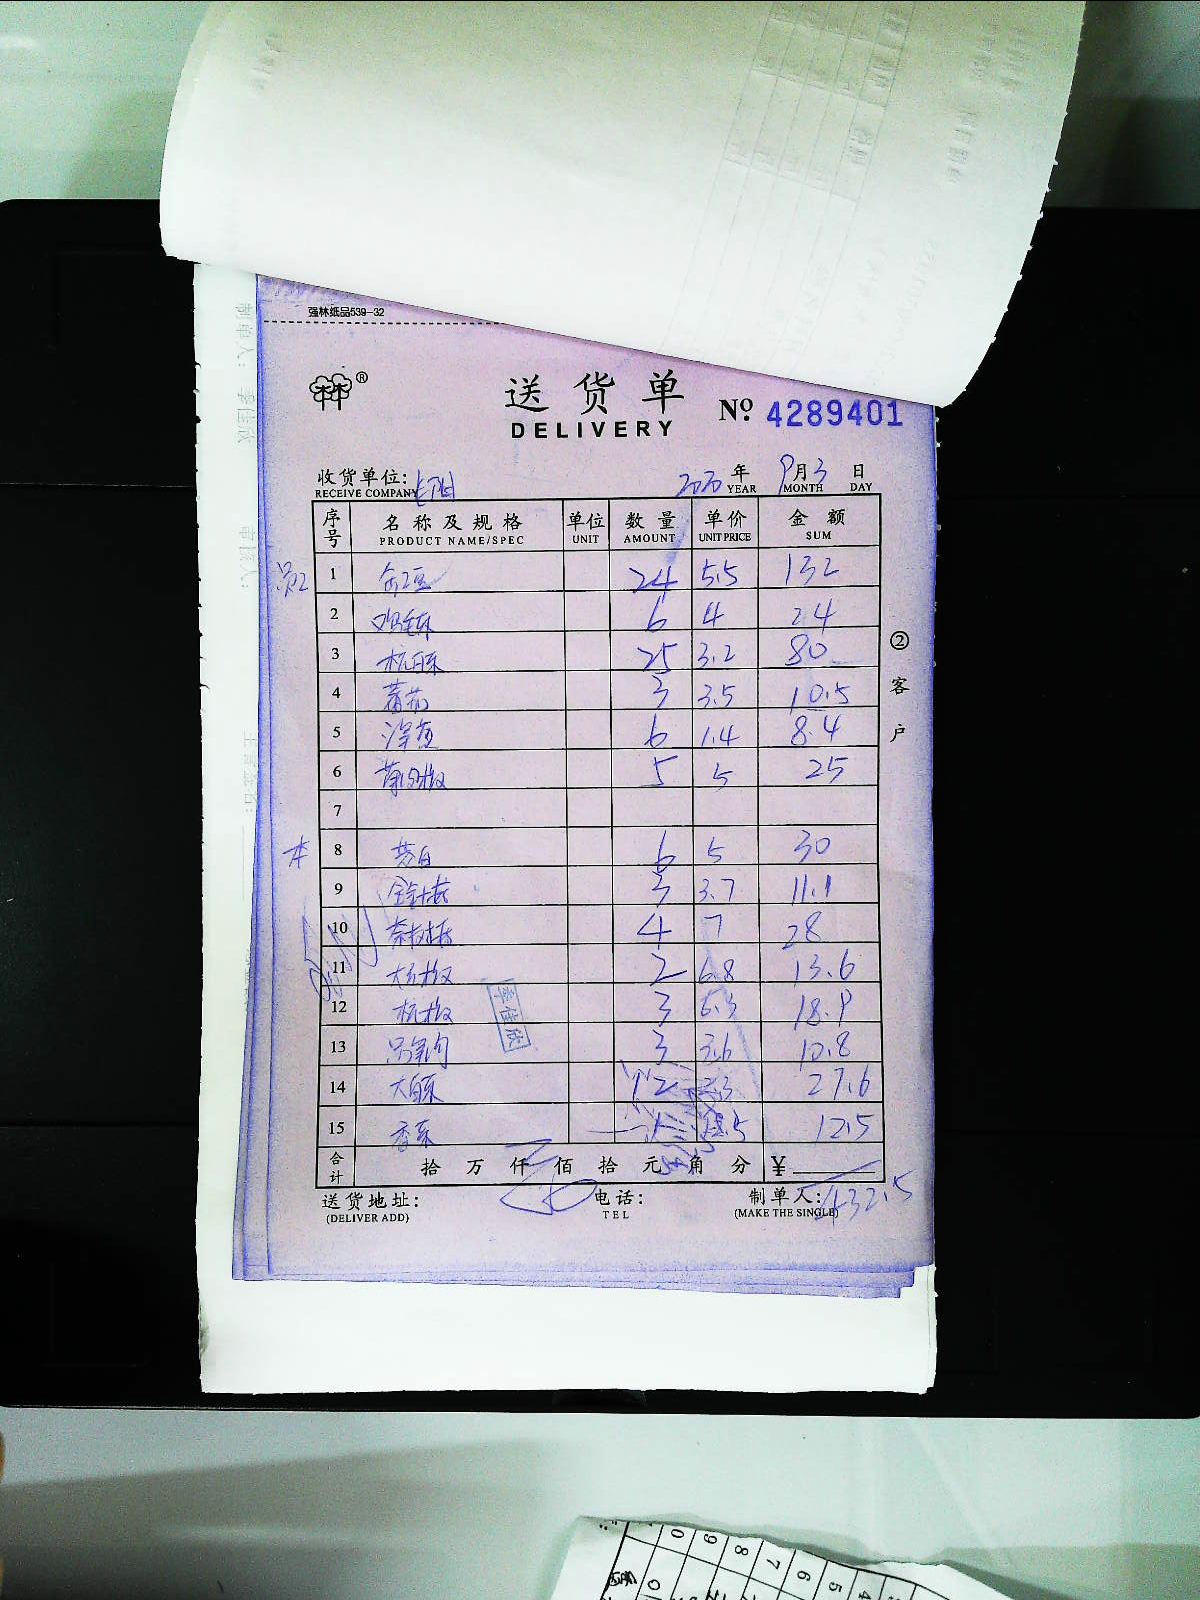 强林纸品539-32
送货单
DELIVERY
№ 4289401
收货单位:
RECEIVE COMPANY
2020 年 9 月 3 日
YEAR MONTH DAY
序号 名称及规格 单位 数量 单价 金额
PRODUCT NAME/SPEC UNIT AMOUNT UNIT PRICE SUM
1 24 5.5 132
2 鸡毛菜 6 4 24
3 杭白菜 25 3.2 80
4 蕃茄 3 3.5 10.5
5 洋葱 6 1.4 8.4
6 5 5 25
7
本 8 茭白 6 5 30
9 金针菇 3 3.7 11.1
10 4 7 28
11 2 6.8 13.6
12 杭椒 3 6.3 18.9
13 3 3.6 10.8
14 大白菜 12 2.3 27.6
15 香菜 1 12.5 12.5
合计 拾 万 仟 佰 拾 元 角 分 ¥
432.5
送货地址: 电话: 制单人:
(DELIVER ADD) TEL (MAKE THE SINGLE)
②客户
李佳欣